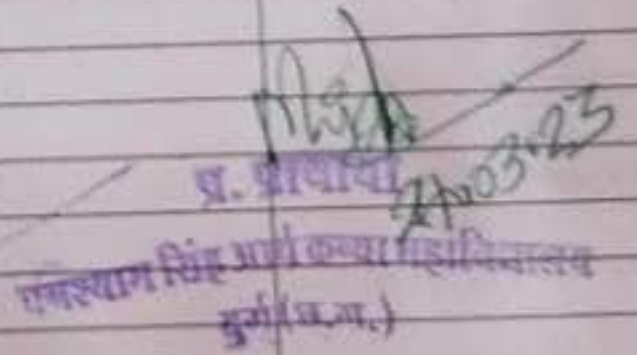 21.03.23
प्र. प्राचार्या
घनश्याम सिंह आर्य कन्या महाविद्यालय
दुर्ग (छ.ग.)